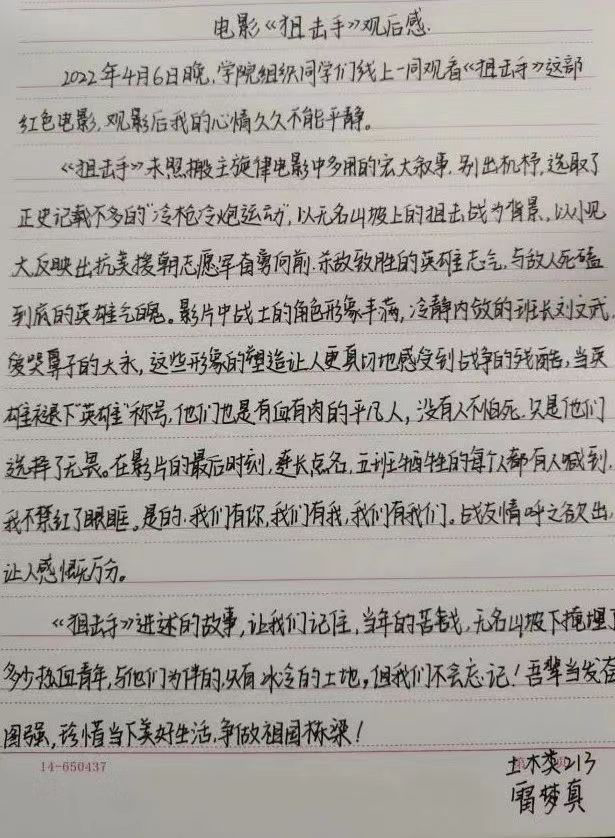 电影《狙击手》观后感.
2022年4月6日晚,学院组织同学们线上一同观看《狙击手》这部
红色电影,观影后我的心情久久不能平静。
《狙击手》未照搬主旋律电影中多用的宏大叙事,别出机杼,选取了
正史记载不多的"冷枪冷炮运动",以无名山坡上的狙击战为背景,以小见
大反映出抗美援朝志愿军奋勇向前,杀敌致胜的英雄志气,与敌人死磕
到底的英雄气魄。影片中战士的角色形象丰满,冷静内敛的班长刘文武,
爱哭鼻子的大永,这些形象的塑造让人更真切地感受到战争的残酷,当英
雄褪下"英雄"称号,他们也是有血有肉的平凡人,没有人不怕死,只是他们
选择了无畏。在影片的最后时刻,连长点名,五班牺牲的每个人都有人喊到,
我不禁红了眼眶。是的,我们有你,我们有我,我们有我们。战友情呼之欲出,
让人感慨万分。
《狙击手》讲述的故事,让我们记住,当年的苦战,无名山坡下掩埋了
多少热血青年,与他们为伴的,只有冰冷的土地,但我们不会忘记!吾辈当发奋
图强,珍惜当下美好生活,争做祖国栋梁!
14-650437
土木类213
雷梦真